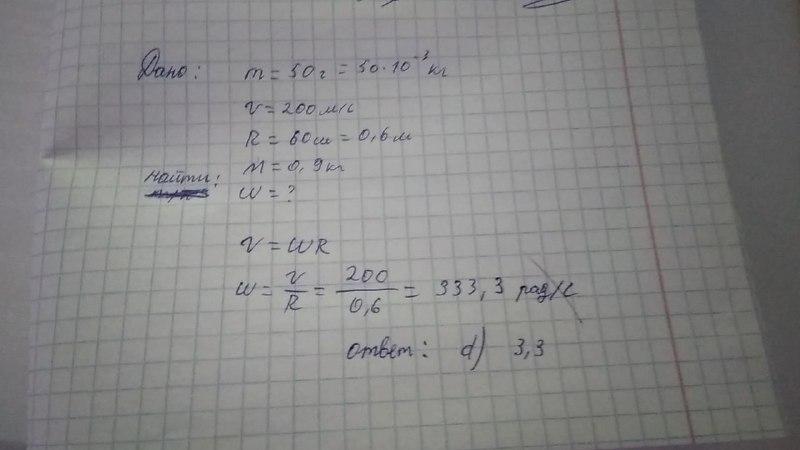 Дано: m = 50г = 50·10⁻³ кг
v = 200 м/с
R = 60см = 0,6м
M = 0,9кг
найти: w = ?
v = wR
w = v/R = 200/0,6 = 333,3 рад/с
ответ: d) 3,3